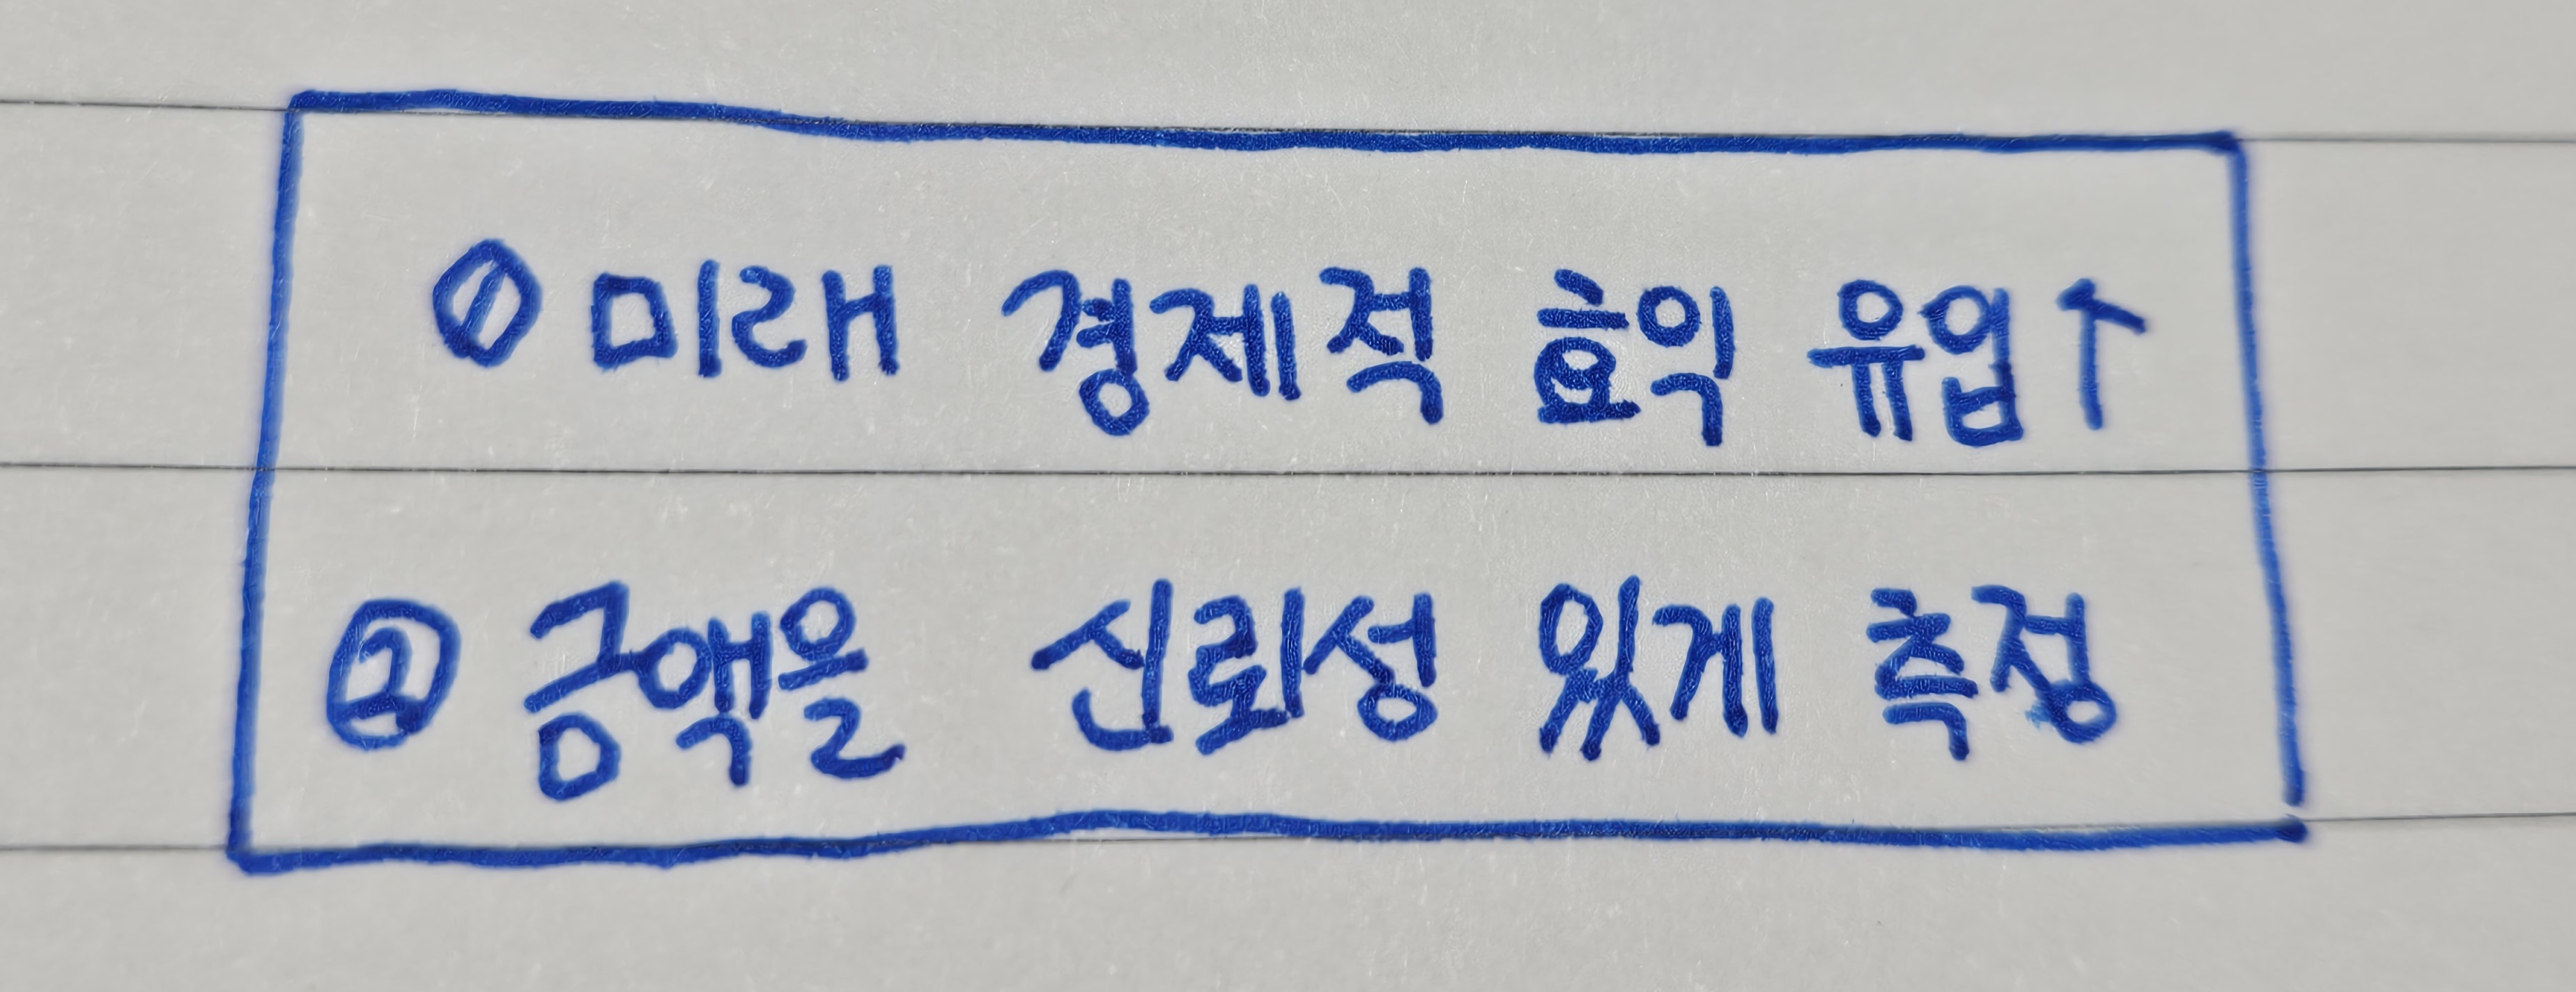 ① 미래 경제적 효익 유입↑
② 금액을 신뢰성 있게 측정